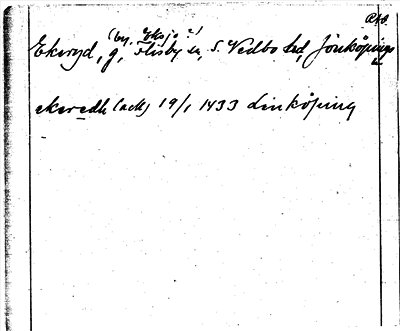 RAp.
(by, Eksjö?)
Ekeryd, g, Flisby sn, S. Vedbo hd, Jönköpings
ln
ekeredh (ack) 19/1 1433 Linköping